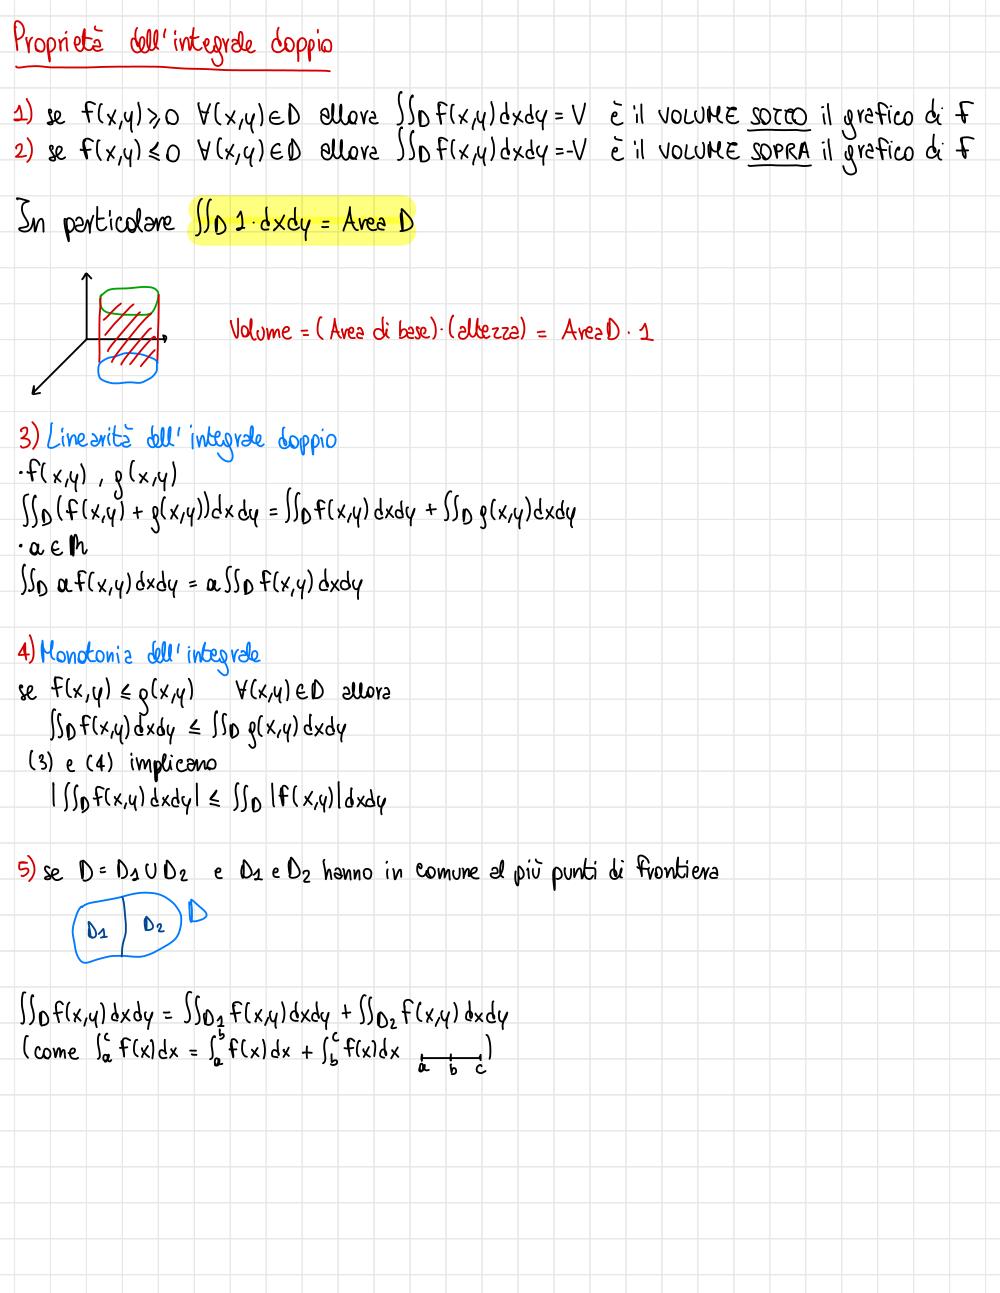 Proprietà dell'integrale doppio
1) se f(x,y) ⩾ 0 ∀(x,y)∈D allora ∬_D f(x,y)dxdy = V è il VOLUME SOTTO il grafico di f
2) se f(x,y) ≤ 0 ∀(x,y)∈D allora ∬_D f(x,y)dxdy = -V è il VOLUME SOPRA il grafico di f
In particolare ∬_D 1·dxdy = Area D
Volume = (Area di base)·(altezza) = Area D · 1
3) Linearità dell'integrale doppio
·f(x,y) , g(x,y)
∬_D (f(x,y) + g(x,y))dxdy = ∬_D f(x,y)dxdy + ∬_D g(x,y)dxdy
·a ∈ ℝ
∬_D a f(x,y)dxdy = a ∬_D f(x,y)dxdy
4) Monotonia dell'integrale
se f(x,y) ≤ g(x,y) ∀(x,y)∈D allora
∬_D f(x,y)dxdy ≤ ∬_D g(x,y)dxdy
(3) e (4) implicano
|∬_D f(x,y)dxdy| ≤ ∬_D |f(x,y)|dxdy
5) se D = D1 ∪ D2 e D1 e D2 hanno in comune al più punti di frontiera
D1 D2 D
∬_D f(x,y)dxdy = ∬_D1 f(x,y)dxdy + ∬_D2 f(x,y)dxdy
(come ∫_a^c f(x)dx = ∫_a^b f(x)dx + ∫_b^c f(x)dx a b c)